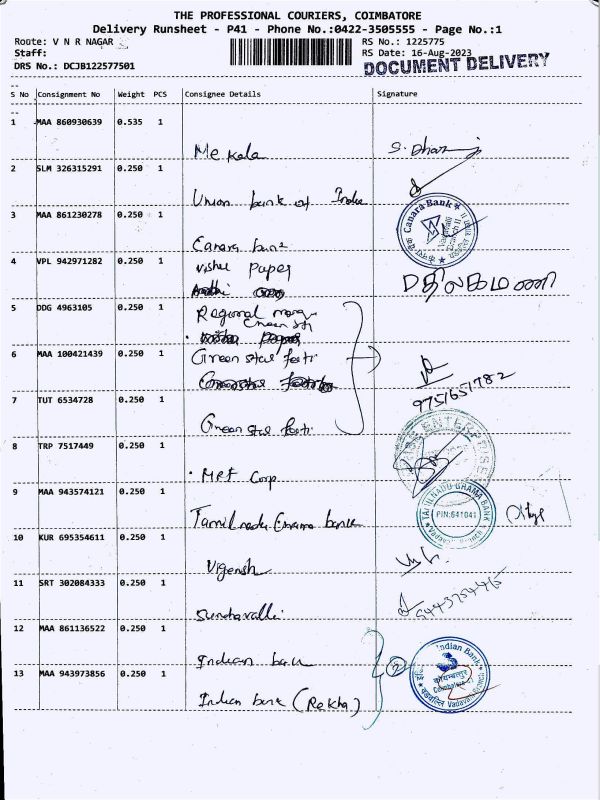 THE PROFESSIONAL COURIERS, COIMBATORE
Delivery Runsheet - P41 - Phone No.:0422-3505555 - Page No.:1
Route: V N R NAGAR
RS No.: 1225775
Staff:
RS Date: 16-Aug-2023
DRS No.: DCJB122577501
DOCUMENT DELIVERY
S No Consignment No Weight PCS Consignee Details Signature
1 MAA 860930639 0.535 1
Mekala S. Dharani
2 SLM 326315291 0.250 1
Union bank of India
3 MAA 861230278 0.250 1
Canara Bank
Canara bank
4 VPL 942971282 0.250 1
Vishu Paper
திலகமணி
5 DDG 4963105 0.250 1
Regional
6 MAA 100421439 0.250 1
Green star ferti
9751651782
7 TUT 6534728 0.250 1
Green star ferti
8 TRP 7517449 0.250 1
MRF Corp
ENTERPRISES
9 MAA 943574121 0.250 1
TAMILNADU GRAMA BANK
PIN:641041
Tamil nadu Grama bank
10 KUR 695354611 0.250 1
Vignesh
11 SRT 302084333 0.250 1
Sundravalli
12 MAA 861136522 0.250 1
Indian bank
2
Indian Bank
13 MAA 943973856 0.250 1
Indian bank (Rekha)